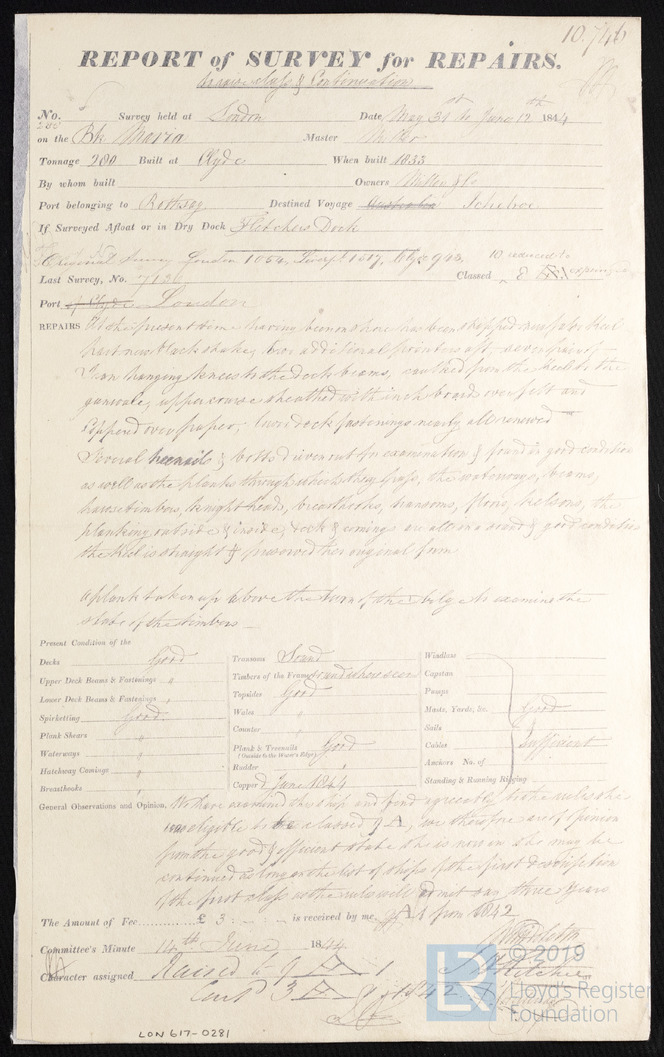 10.746
REPORT of SURVEY for REPAIRS.
to raise class & Continuation
No. Survey held at London Date May 31st to June 12th 1844
280
on the Bk Maria Master Miller
Tonnage 280 Built at Clyde When built 1833
By whom built Owners
Port belonging to Rothsay Destined Voyage Australia Ichaboe
If Surveyed Afloat or in Dry Dock Fletchers Dock
Survey London 1054, Liverpl 1517, Clyde 943,
Last Survey, No. Classed
Port of Clyde London
REPAIRS At the present time having been on shore has been stripped
part new black strake, additional pointers aft, pair of
Iron hanging knees to the deck beams, caulked from the keel to the
gunwale, upper course sheathed with inch board over felt and
Coppered over paper, deck fastenings nearly all renewed
Several treenails & bolts driven out for examination & found in good condition
as well as the planks through which they pass, the waterways, beams,
hawse timbers, knight heads, breasthooks, transoms, floors, kelsons, the
planking outside & inside, deck & comings are all in a sound & good condition
the keel is straight & preserved her original form
A plank taken up above the turn of the bilge to examine the
state of the timbers
Present Condition of the
Decks Good
Upper Deck Beams & Fastenings "
Lower Deck Beams & Fastenings "
Spirketting Good
Plank Shears "
Waterways "
Hatchway Comings "
Breasthooks "
Transoms Sound
Timbers of the Frame sound where seen
Topsides Good
Wales "
Counter "
Plank & Treenails Good
(Outside to the Water's Edge)
Rudder "
Copper June 1844
Windlass
Capstan
Pumps
Masts, Yards, &c. Good
Sails
Cables Sufficient
Anchors No. of
Standing & Running Rigging
General Observations and Opinion, We have examined this ship and find agreeably to the rules she
was eligible to be classed 9 A, we therefore are of opinion
from the good & efficient state she is now in she may be
continued as long on the list of ships of the first description
of the first class as the rules will admit three years
The Amount of Fee £ 3 : - : - is received by me, A 1 from 1842
Committee's Minute 14th June 1844
Character assigned Raised to 9 A 1
Contd 3 A 1842
J Fletcher
LON 617-0281
LR
© 2019
Lloyd's Register
Foundation